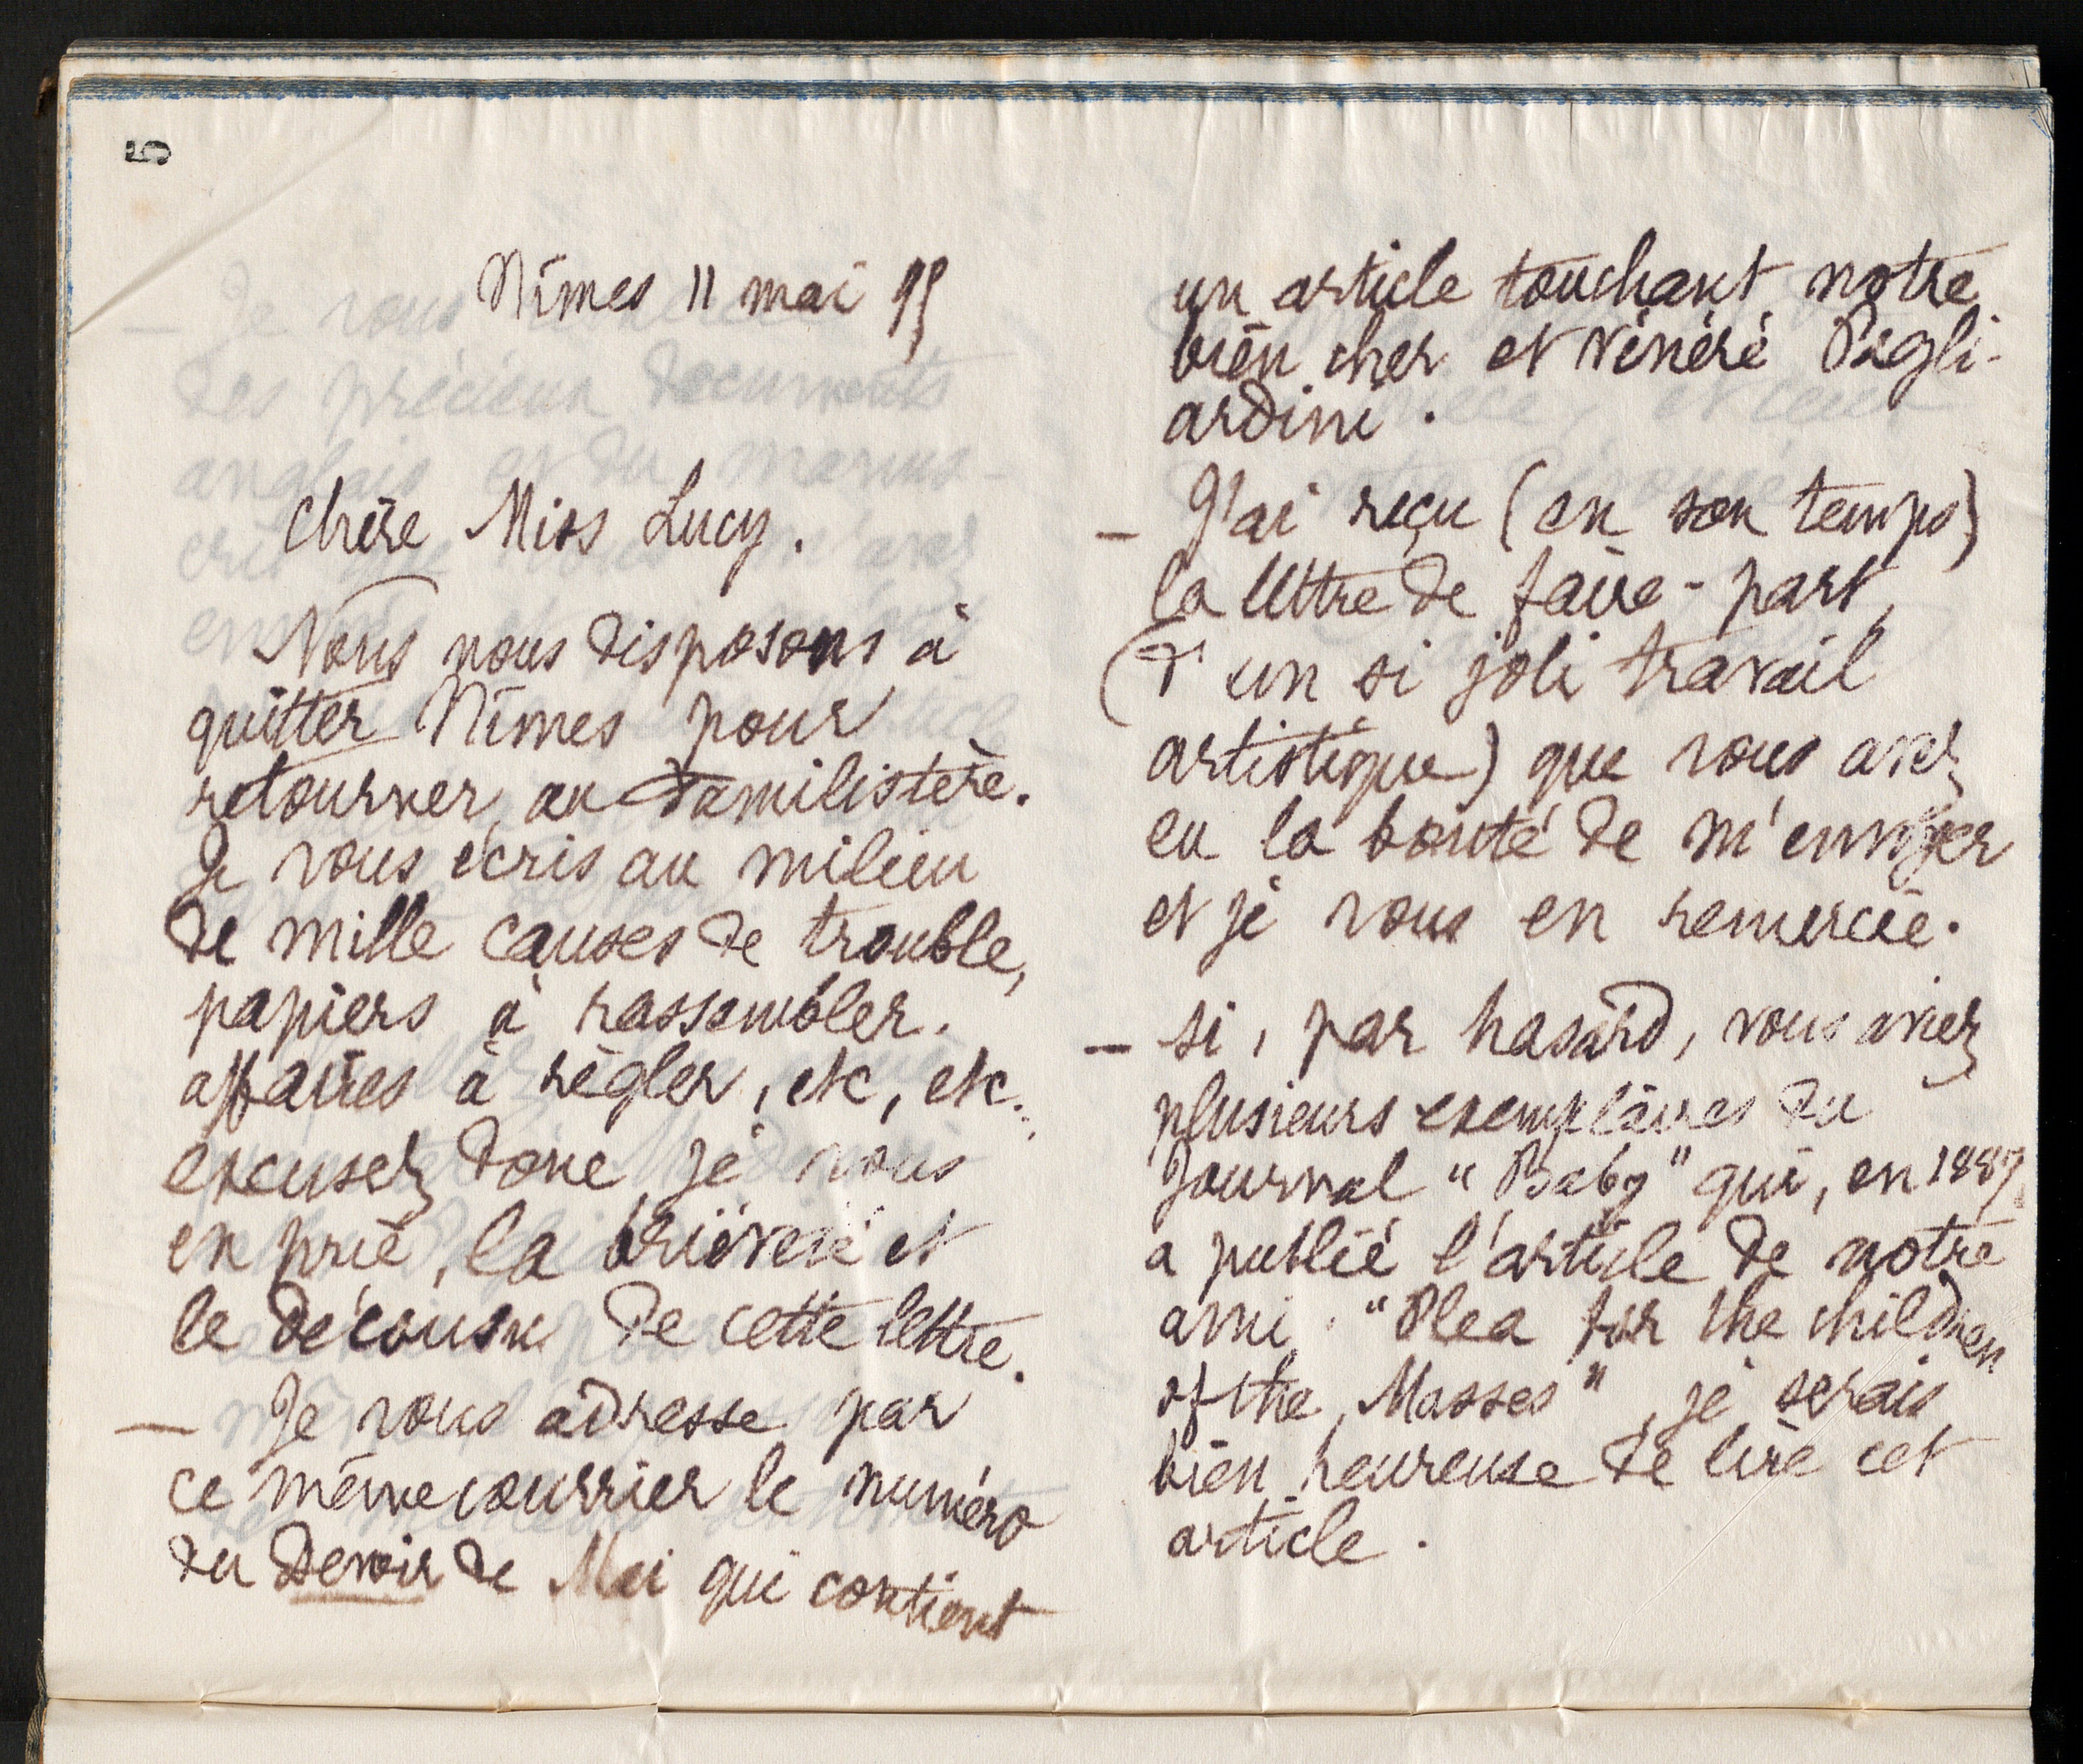 5
Nîmes 11 mai 95
Chère Miss Lucy.
Nous nous disposons à
quitter Nîmes pour
retourner au Familistère.
Je vous écris au milieu
de mille causes de trouble,
papiers à rassembler.
affaires à régler, etc, etc.
excusez donc, je vous
en prie, la brièveté et
le décousu de cette lettre.
— Je vous adresse par
ce même courrier le numéro
du Devoir de Mai qui contient
un article touchant notre
bien cher et vénéré Pagli-
ardini.
— J'ai reçu (en son temps)
la lettre de faire-part,
(d'un si joli travail
artistique) que vous avez
eu la bonté de m'envoyer
et je vous en remercie.
— si, par hasard, vous aviez
plusieurs exemplaires du
Journal "Baby" qui, en 1887,
a publié l'article de notre
ami "Plea for the children
of the Masses", je serais
bien heureuse de lire cet
article.